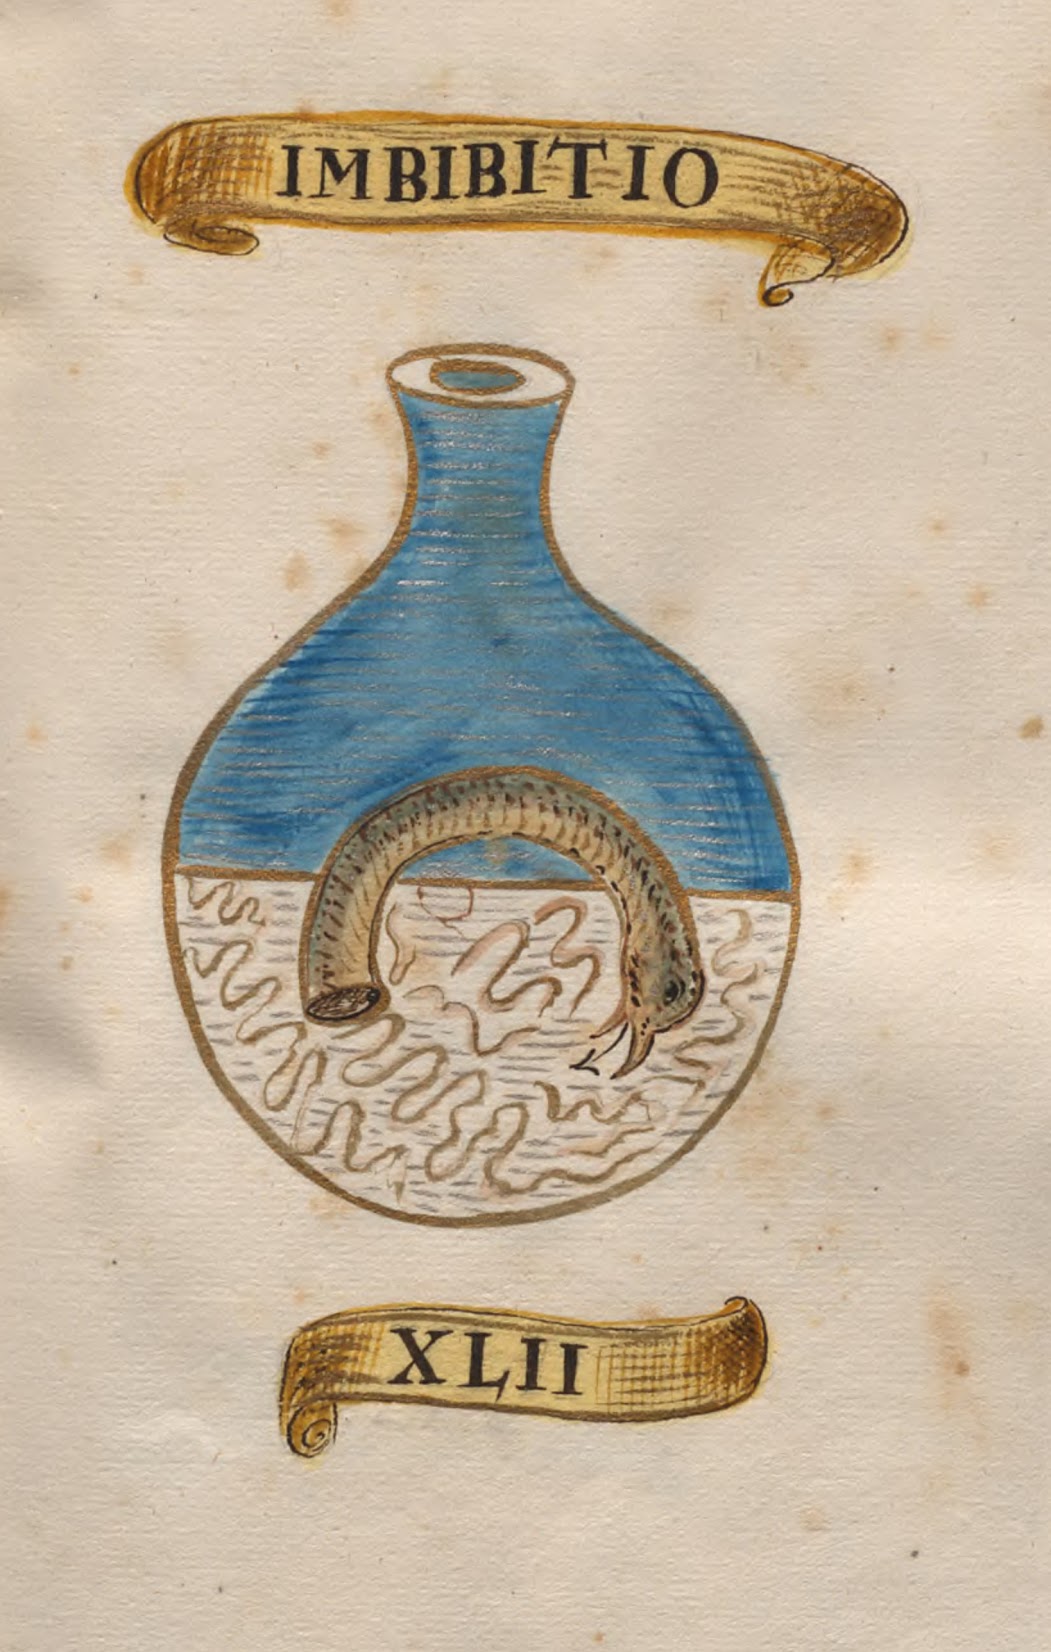 IMBIBITIO
XLII